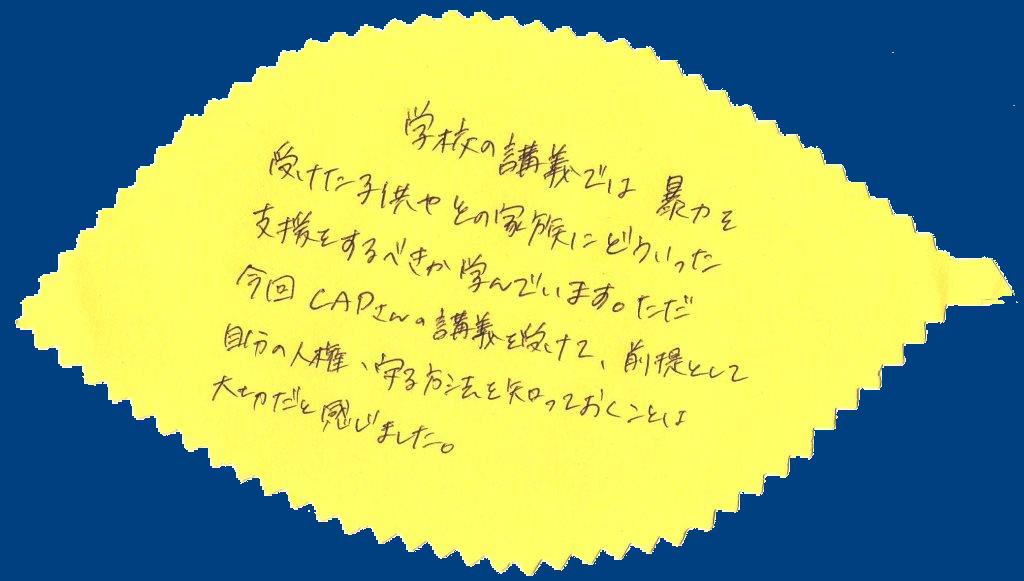 学校の講義では 暴力を
受けた子供やその家族にどういった
支援をするべきか学んでいます。ただ
今回CAPさんの講義を受けて、前提として
自分の人権、守る方法を知っておくことは
大切だと感じました。